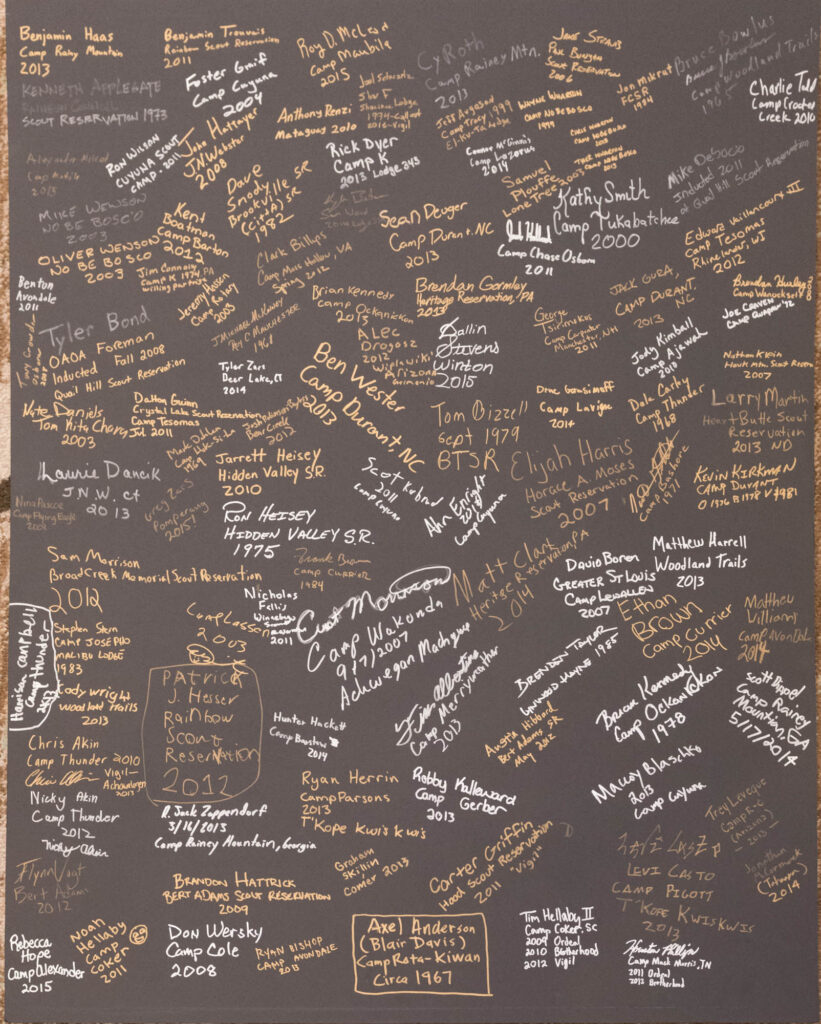 Benjamin Haas
Camp Rainy Mountain
2013
Benjamin Trouvais
Rainbow Scout Reservation
2011
Roy D. McLeod
Camp Maubila
2015
Cy Roth
Camp Rainey Mtn.
2013
Jake Straus
Paul Bunyan
Scout Reservation
2006
Bruce Bowlus
Camp Woodland Trails
1965
KENNETH APPLEGATE
SCOUT RESERVATION 1973
Foster Graif
Camp Cuyuna
2004
Anthony Renzi
Mataguay 2010
Jon Mikrut
FCSR
1994
Charlie Todd
Camp Crooked
Creek 2010
RON WILSON
CUYUNA SCOUT
CAMP - 2011
John Hattayer
J.N. Webster
2008
Rick Dyer
Camp K
2013 Lodge 243
WAYNE WENSON
CAMP NO BE BOSCO
1999
Connor McGinnis
Camp Lazarus
2014
Samuel
Plouffe
Lone Tree 2003
Mike DeSocio
Inducted 2011
at Quail Hill Scout Reservation
MIKE WENSON
NO BE BOSCO
2003
Dave
Snody
Brookville SR
(CittA) SR
1982
Kathy Smith
Camp Tukabatchee
2000
OLIVER WENSON
NO BE BOSCO
2003
Kent
Boatman
Camp Barton
2012
Sean Deuger
Camp Durant, NC
2013
Camp Chase Osborn
2011
Edward Vaillancourt III
Camp Tesomas
Rhinelander, WI
2012
Benton
Avondale
2011
Jim Connolly
Camp K 1974 PA
Jeremy Hassen
Camp Raley
2003
Clark Billups
Camp Mack Hollow, VA
Spring 2012
Brian Kennedy
Camp Ockanickon
Brendan Gormley
Heritage Reservation, PA
2013
JACK GURA,
CAMP DURANT,
NC
2013
Brendan Hurley
JOE CRAVEN
Tyler Bond
OAOA Foreman
Inducted Fall 2008
Quail Hill Scout Reservation
J MICHAEL McKINNEY
1968
ALEC
Dragosz
2012
Wiplawiki
Arizona
Dallin
Stevens
Winton
2015
George
Tsirimokos
Camp Carpenter
Manchester, NH
2011
Jody Kimball
Camp Ajawah
2010
Nathan Klein
Hawk Mtn. Scout Reserv
2007
Tyler Zars
Deer Lake, CT
2014
Nate Daniels
Tom Kita Chara
2003
Dalton Guinn
Crystal Lake Scout Reservation
Camp Tesomas
Jul 2011
Ben Wester
Camp Durant, NC
2013
Camp Lavigne
2014
Dale Corby
Camp Thunder
1968
Larry Martin
Heart Butte Scout
Reservation
2013 ND
Tom Bizzell
Sept 1979
BTSR
Laurie Dancik
J.N.W. ct
2013
Jarrett Heisey
Hidden Valley S.R.
2010
Elijah Harris
Horace A. Moses
Scout Reservation
2007
Camp Bashore
1971
KEVIN KIRKMAN
CAMP DURANT
O 1976 B 1978 V 1981
Nina Pascoe
Camp Flying Eagle
Greg Zars
Pomperaug
2015?
RON HEISEY
HIDDEN VALLEY S.R.
1975
Camp Cuyuna
Ahn Enright
Camp Cuyuna
Sam Morrison
Broad Creek Memorial Scout Reservation
2012
Frank Brown
CAMP CURRIER
1984
Matt Clark
Heritage Reservation, PA
2014
David Boren
GREATER ST LOUIS
CAMP LEWALLEN
2007
Matthew Harrell
Woodland Trails
2013
Nicholas
Fellis
Winnebago
2011
Camp Lassen
2003
Curt Morrison
Camp Wakonda
9/7/2007
Achwegan Machque
Ethan
Brown
Camp Currier
2014
Matthew
Villiami
Camp AvonDale
2014
Harrison Campbell
Camp Thunder
2013
Stephen Stern
CAMP JOSEPHO
MALIBU LODGE
1983
Cody Wright
Woodland Trails
2013
PATRICK
J. Hesser
RAINBOW
SCOUT
RESERVATION
2012
Hunter Hackett
Camp Barstow
2014
Camp Merryweather
2013
BRENDEN TAYLOR
LYNWOOD HAYNE 1985
Amanda Hibbard
Bert Adams SR
May 2012
Bruce Kennedy
Camp Ockanickon
1978
Scott Dippel
Camp Rainey
Mountain, GA
5/17/2014
Chris Akin
Camp Thunder 2010
Vigil-
Achewilagen
2013
Nicky Akin
Camp Thunder
2012
Nicky Akin
D. Jack Zoppendorf
3/16/2013
Camp Rainey Mountain, Georgia
Ryan Herrin
Camp Parsons
2013
T'Kope Kwis Kwis
Robby Kalleward
Camp Gerber
2013
Macay Blaschko
2013
Camp Cuyuna
Trey Leveque
2013
Flynn Vogt
Bert Adams
2012
BRANDON HATTRICK
BERT ADAMS SCOUT RESERVATION
2009
Graham
Skillin
Comer 2013
Carter Griffin
Hood Scout Reservation
2011 "Vigil"
LEVI CASTO
CAMP PIGOTT
T'KOPE KWISKWIS
2013
Jonathan
McCormack
2014
Rebecca
Hope
Camp Alexander
2015
Noah
Hellaby
Camp
Coker
2011
Don Wersky
Camp Cole
2008
RYAN BISHOP
CAMP AVONDALE
2013
Axel Anderson
(Blair Davis)
Camp Rota-Kiwan
Circa 1967
Tim Hellaby II
Camp Coker, SC
2009 Ordeal
2010 Brotherhood
2012 Vigil
Camp Mack Morris, TN
2011 Ordeal
2013 Brotherhood